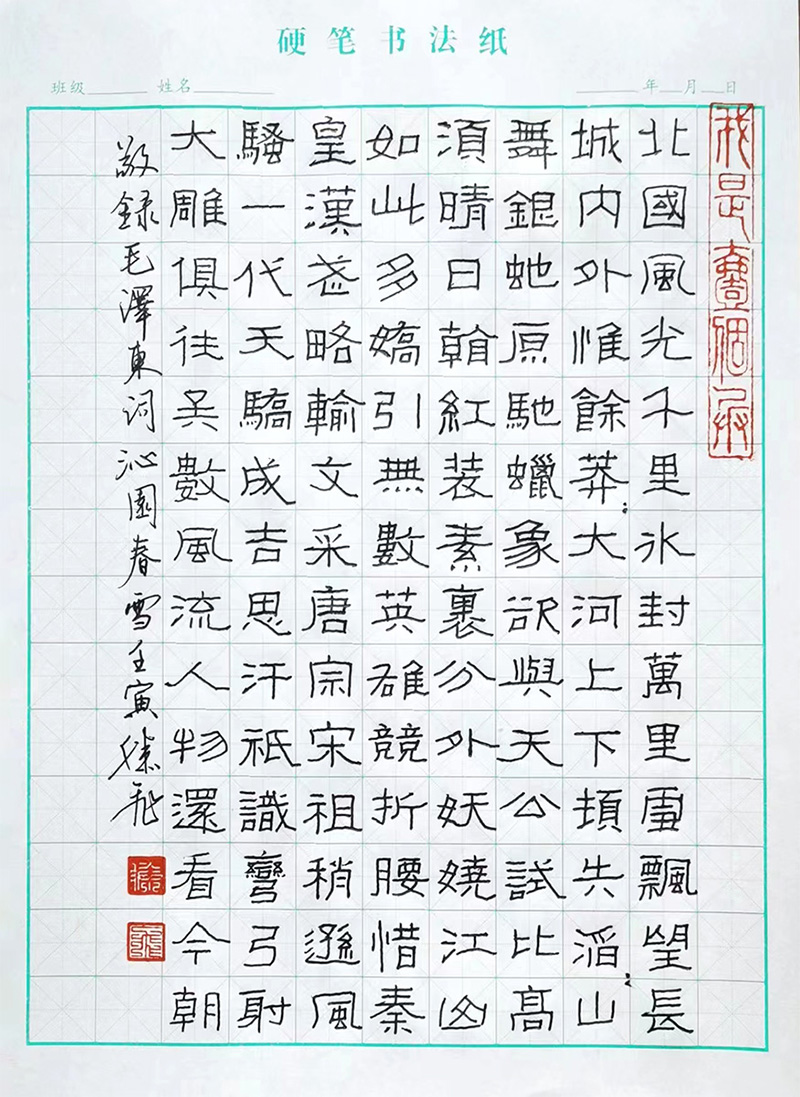 硬笔书法纸
班级 姓名 年 月 日
我是壹個兵
北國風光千里氷封萬里雪飄望長
城内外惟餘莽：大河上下頓失滔：山
舞銀虵原馳蠟象欲與天公試比高
須晴日看紅装素裹分外妖嬈江山
如此多嬌引無數英雄競折腰惜秦
皇漢武略輸文采唐宗宋祖稍遜風
騷一代天驕成吉思汗祇識彎弓射
大雕俱往矣數風流人物還看今朝
敬録毛澤東词沁園春雪壬寅